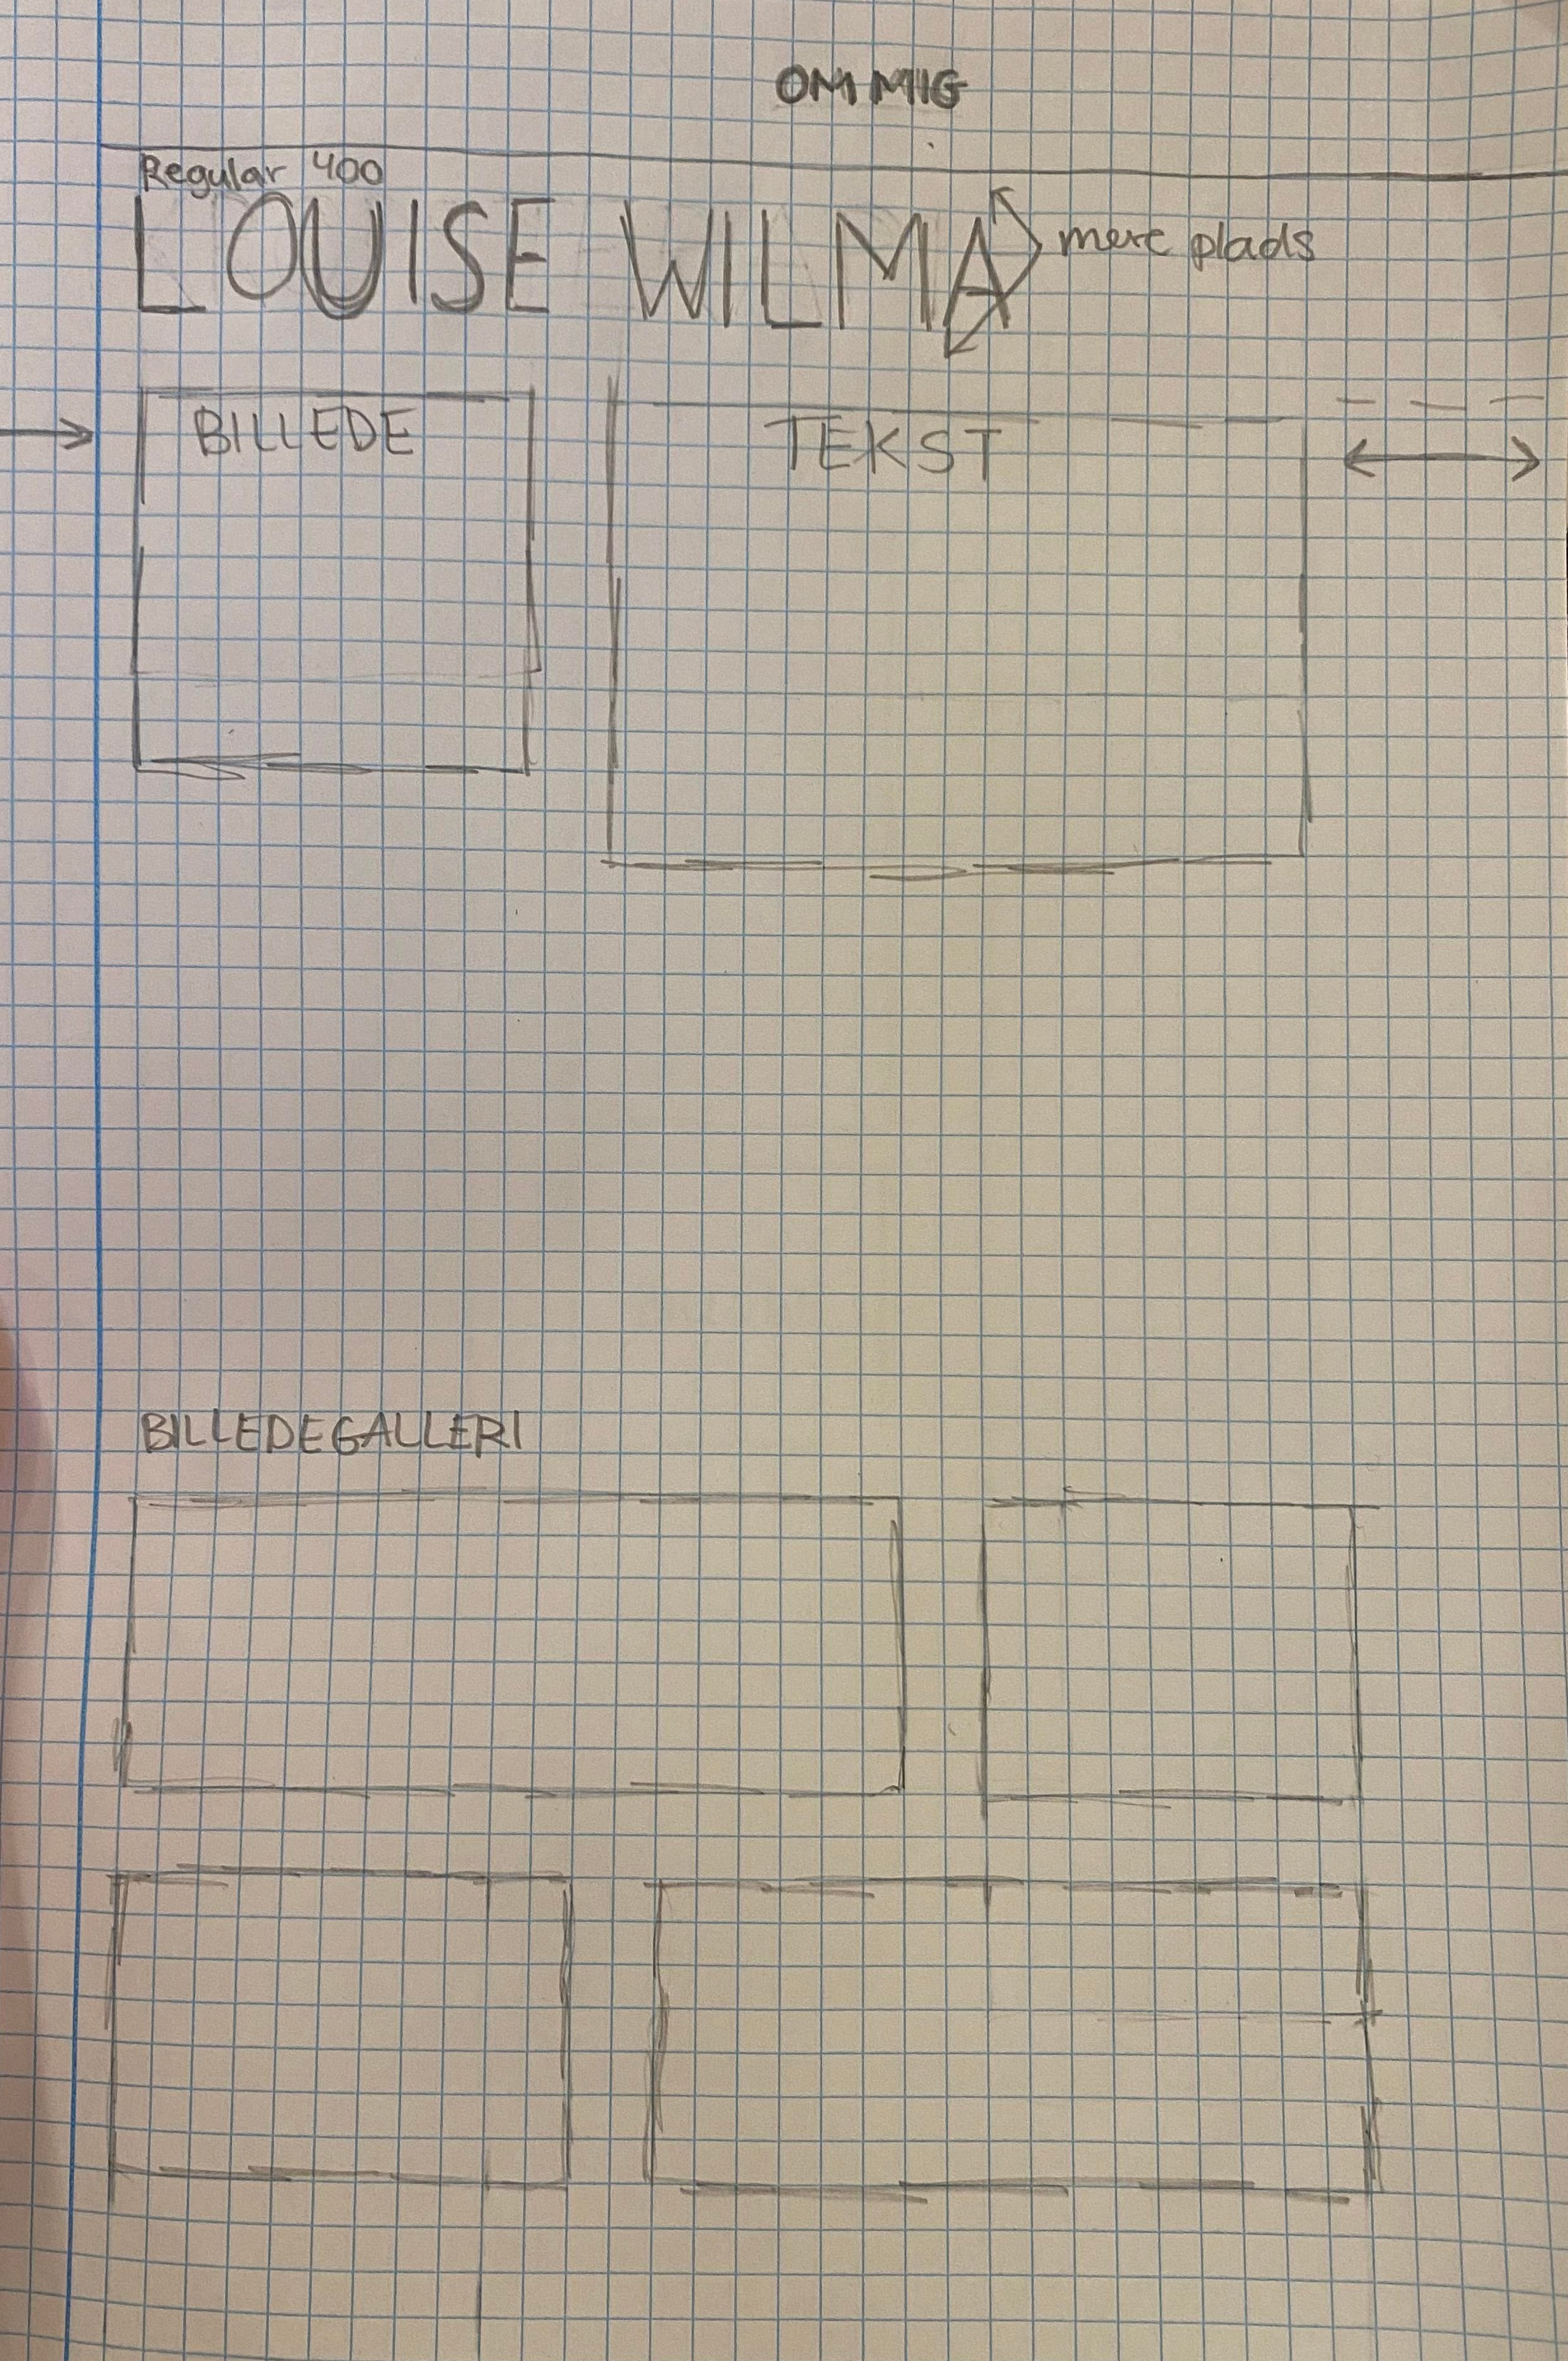 OM MIG
Regular 400
LOUISE WILMA
mere plads
BILLEDE
TEKST
BILLEDEGALLERI